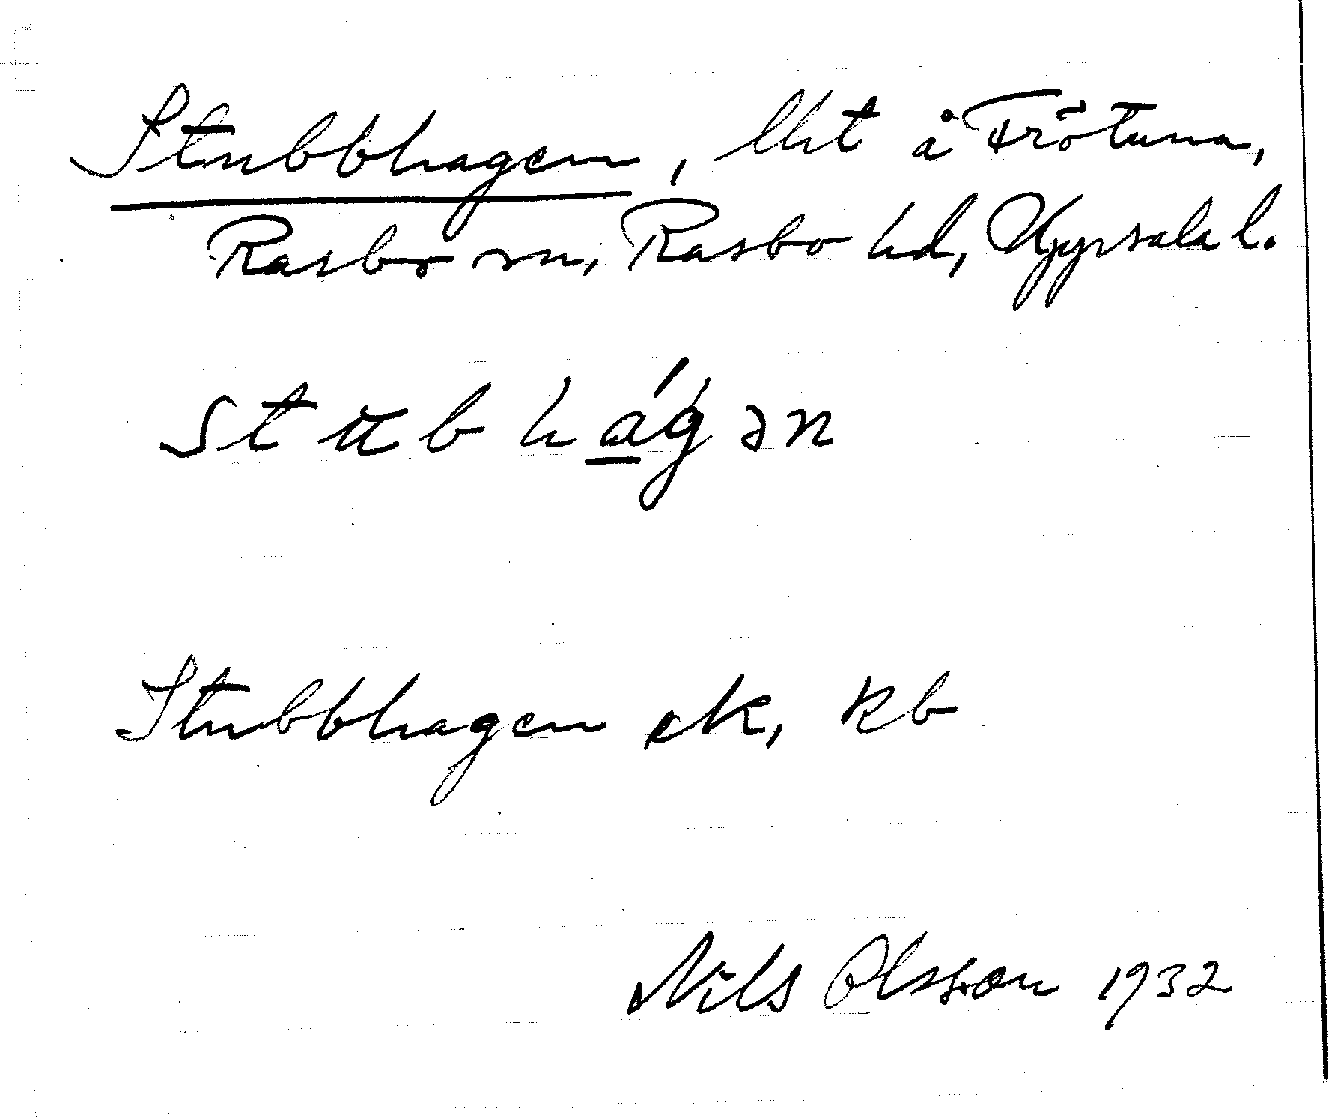 Stubbhagen, lht å Frötuna,
Rasbo sn, Rasbo hd, Uppsala l.
stubhágən
Stubbhagen ek, kb
Nils Olsson 1932